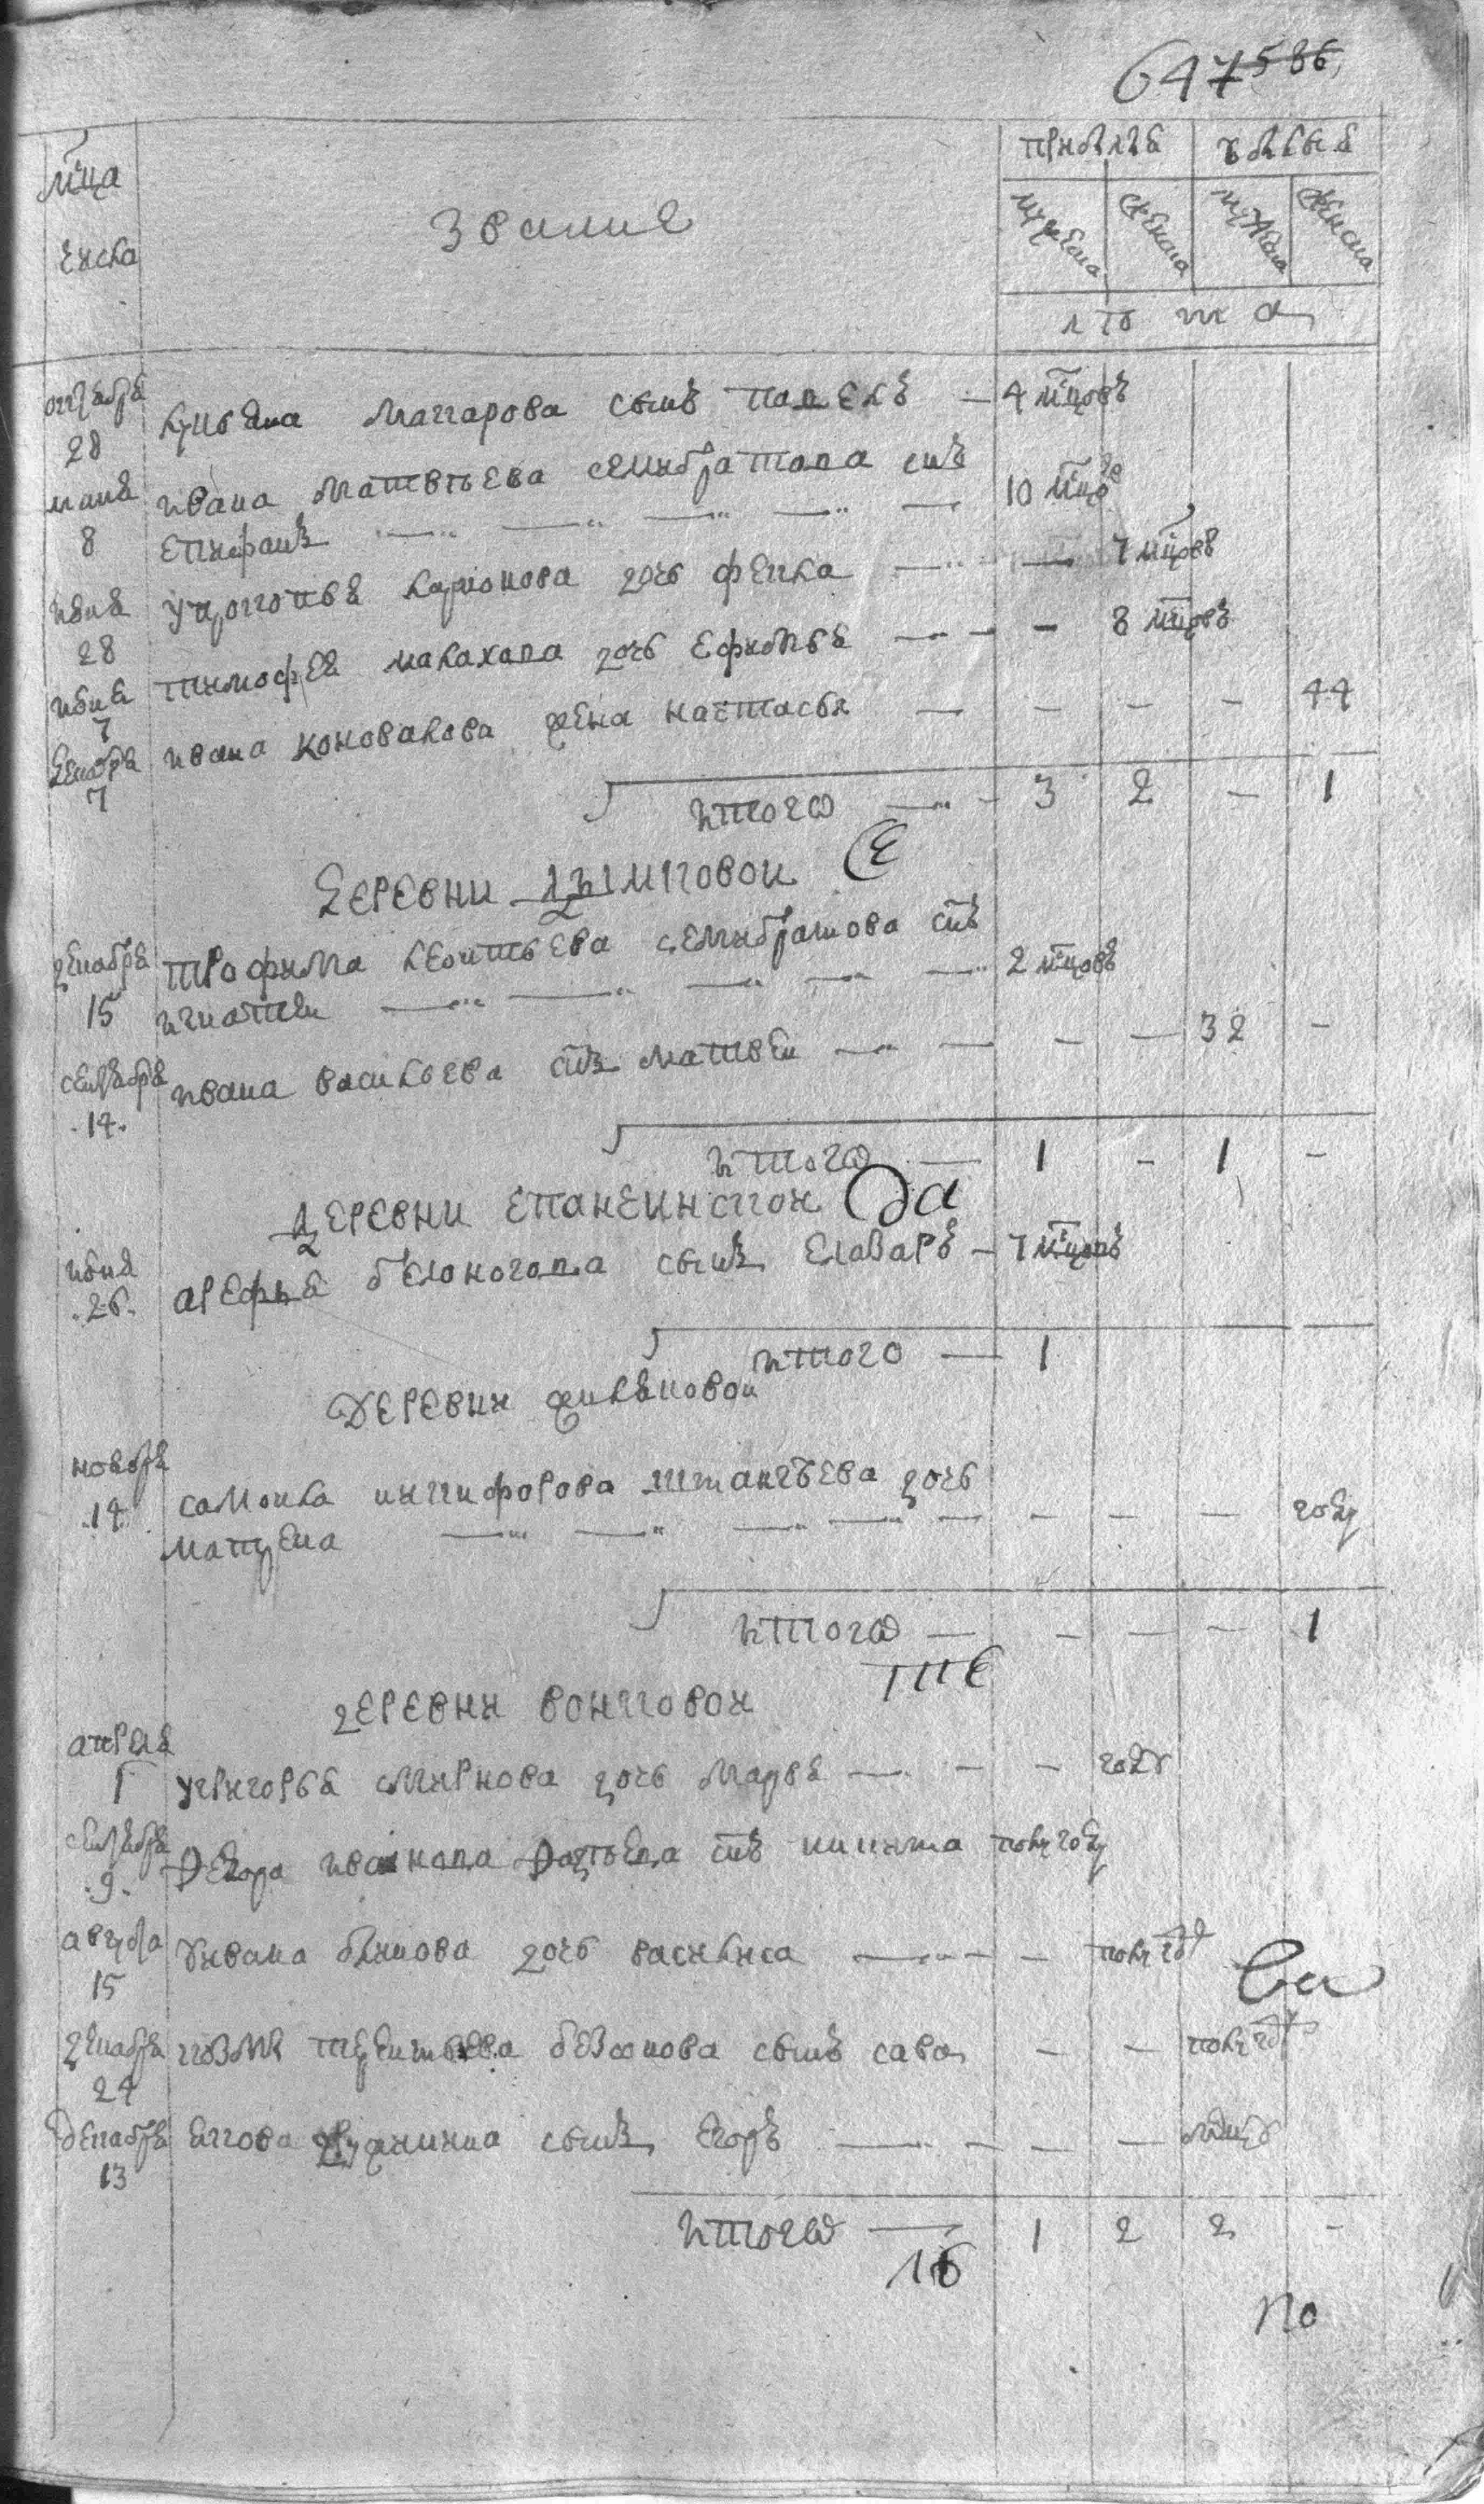 647 586
мца числа
звание
прибыля убыля
мужеска женска мужеска женска
лѣта
октября 28 лукьяна макарова сынъ павелъ — 4 мцовъ
маия 8 ивана матвѣева селибратова снъ
епифанъ — 10 мцовъ
июня 28 у прокопья ларионова дочь фекла — 7 мцовъ
июня 7 тимофея малахова дочь ефимья — 8 мцовъ
декабря 7 ивана коновалова жена настасья — 44
итого — 3 2 — 1
деревни дымковои
декабря 15 трофима леонтьева селибратова снъ
игнатеи — 2 мцовъ
сентября 14 ивана васильева снъ матвеи — 32 —
итого — 1 — 1 —
деревни епанеинскои
июня 26 арефья белоногова сынъ елизаръ — 7 мцовъ
итого — 1
деревни
ноября 14 самоила никифорова дочь
матрена — году
итого — 1
деревни вонговои
апреля 1 у григорья смирнова дочь марья — году
сентября 9 федора иванова снъ никита полугоду
августа 15 у ивана дочь василиса — полугоду
декабря 24 козмы терентьева сынъ сава — полугоду
декабря 13 якова сынъ егоръ — мцу
итого — 1 2 2 —
по